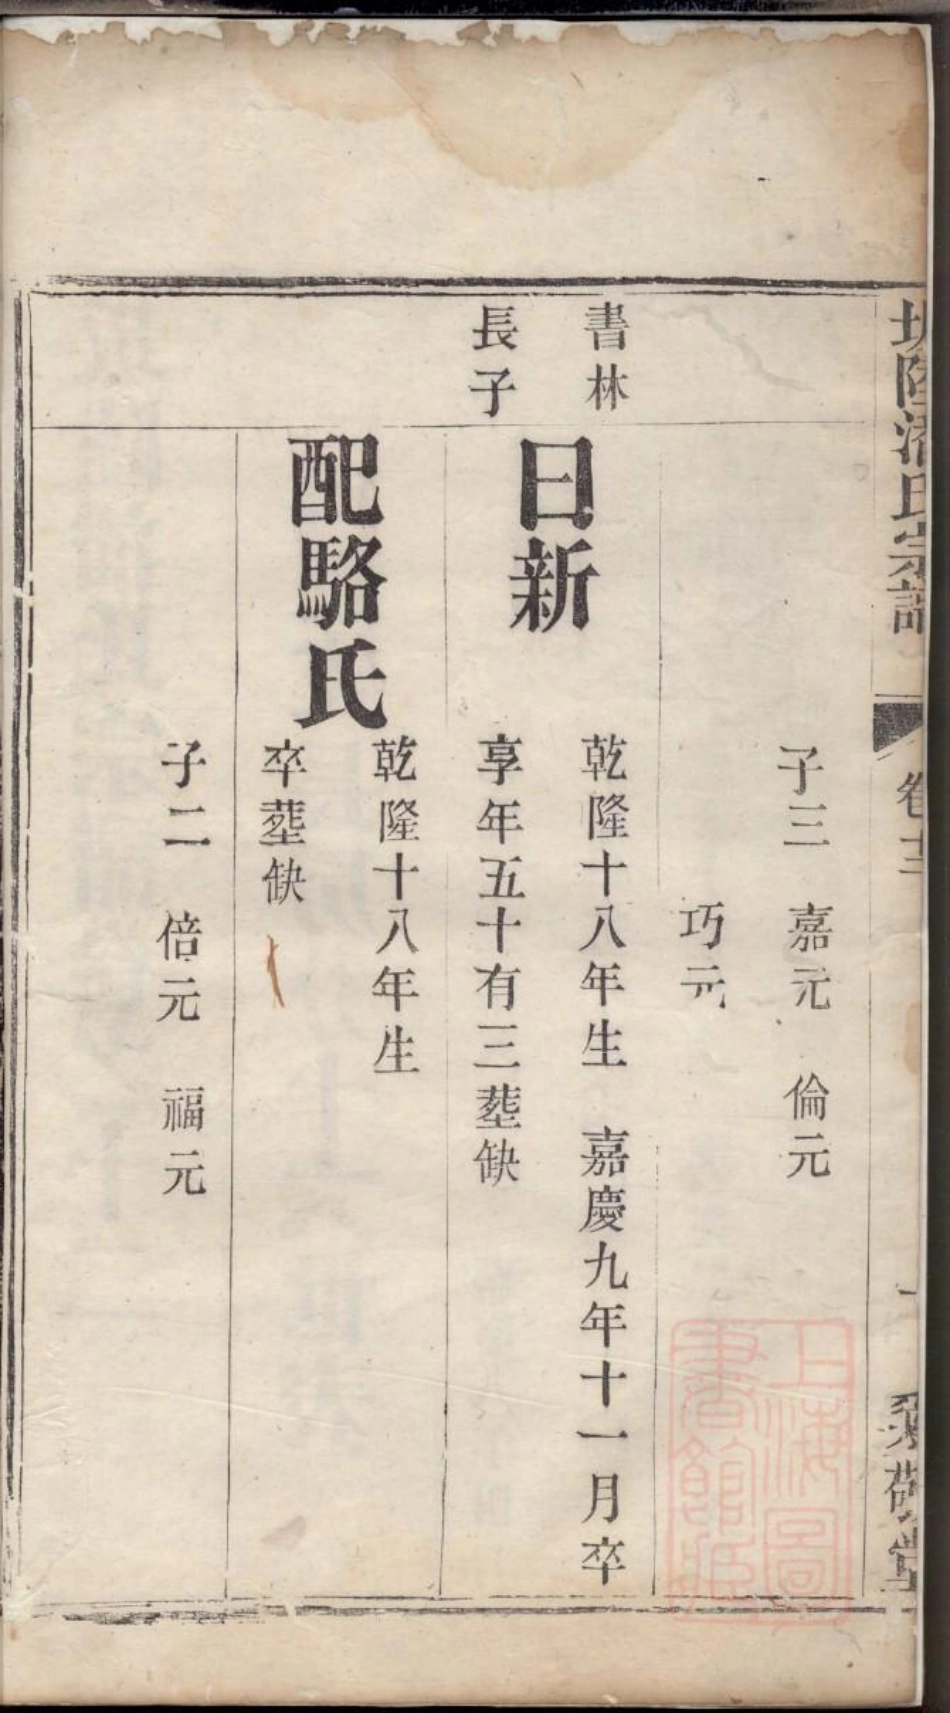 陸潘氏宗譜
卷十三
敬堂
子三 嘉元 倫元
巧元
書林
長子
日新
乾隆十八年生 嘉慶九年十一月卒
享年五十有三塟缺
配駱氏
乾隆十八年生
卒塟缺
子二 倍元 福元
上海圖
書館藏